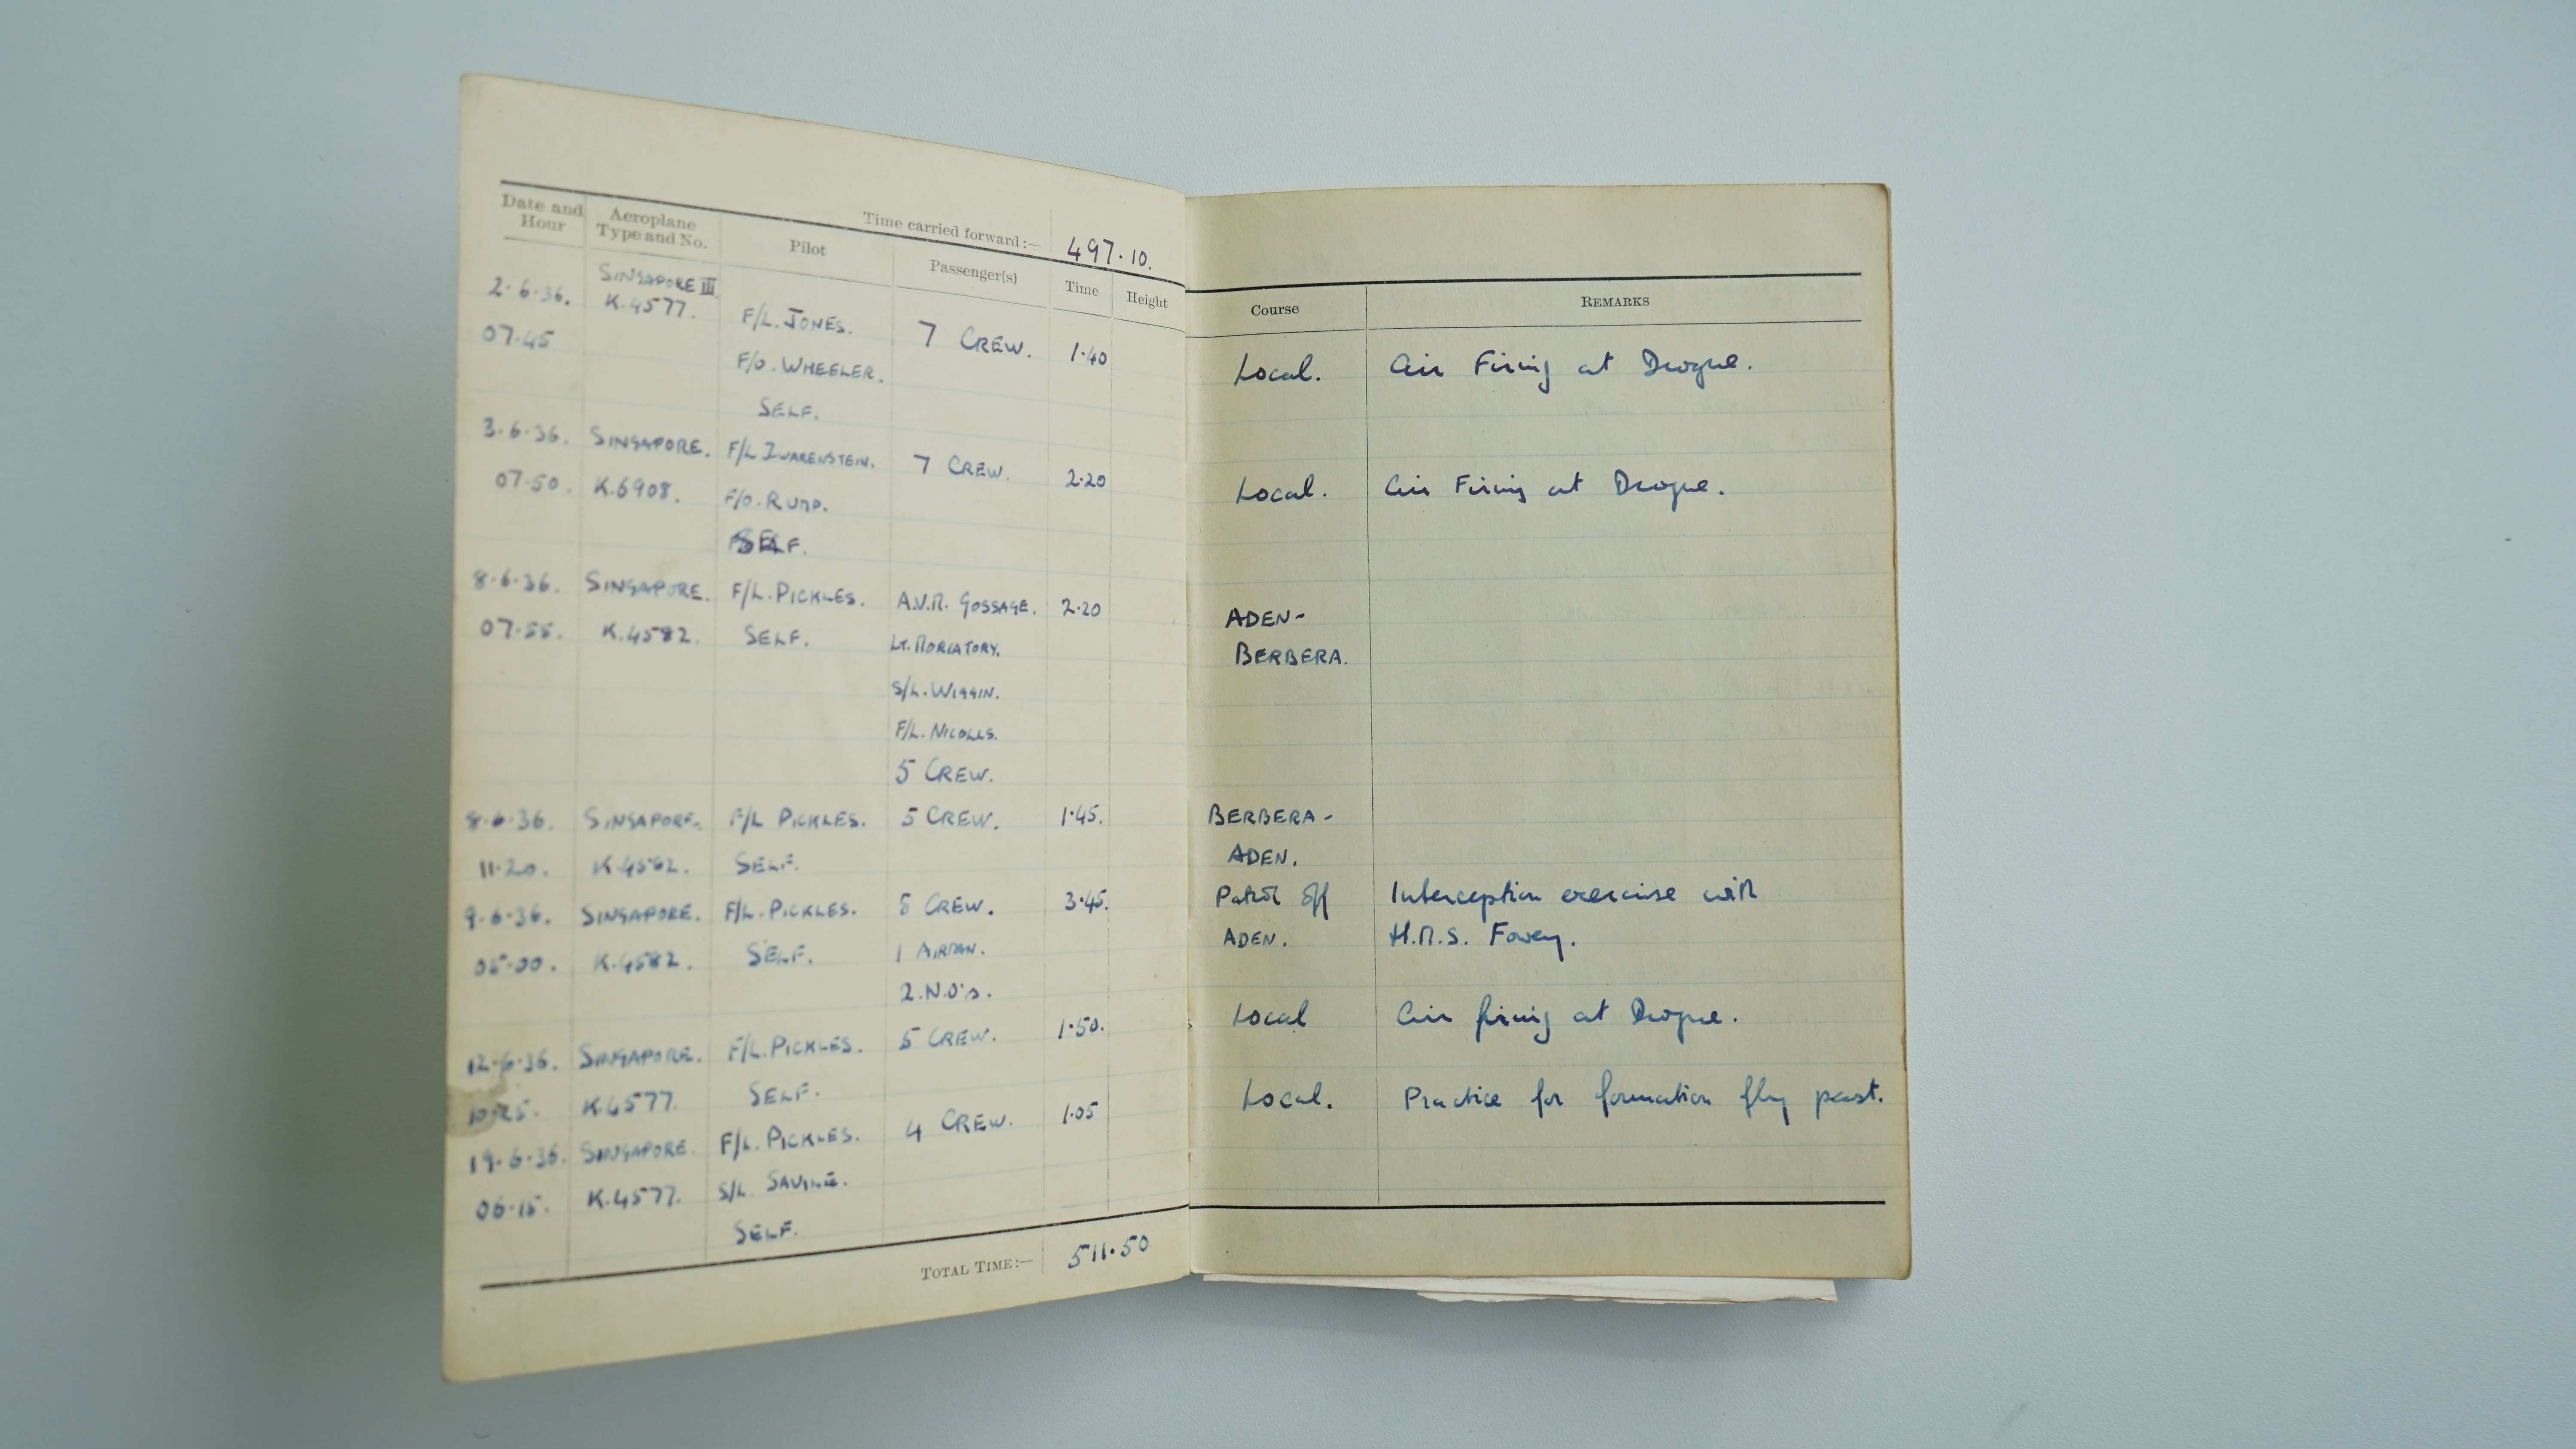 Time carried forward :— 497.10.
Date and Hour | Aeroplane Type and No. | Pilot | Passenger(s) | Time | Height | Course | REMARKS
2.6.36. | SINGAPORE III | F/L. JONES. | 7 CREW. | 1.40 | Local. | Air Firing at Drogue.
07.45 | K.4577. | F/O. WHEELER.
SELF.
3.6.36. | SINGAPORE. | F/L ZWARENSTEIN. | 7 CREW. | 2.20 | Local. | Air Firing at Drogue.
07.50. | K.6908. | F/O. RUMP.
SELF.
8.6.36. | SINGAPORE. | F/L. PICKLES. | A.V.M. GOSSAGE. | 2.20 | ADEN-
07.55. | K.4582. | SELF. | LT. MORIATORY. | BERBERA.
S/L. WIGGIN.
F/L. NICOLLS.
5 CREW.
8.6.36. | SINGAPORE. | F/L PICKLES. | 5 CREW. | 1.45. | BERBERA-
11.20. | K.4582. | SELF. | ADEN.
9.6.36. | SINGAPORE. | F/L. PICKLES. | 5 CREW. | 3.45. | Patrol off | Interception exercise with
05.00. | K.4582. | SELF. | 1 AIRMAN. | ADEN. | H.M.S. Fowey.
2.N.O's.
12.6.36. | SINGAPORE. | F/L. PICKLES. | 5 CREW. | 1.50. | Local | Air firing at Drogue.
10.25. | K.4577. | SELF.
19.6.36. | SINGAPORE. | F/L. PICKLES. | 4 CREW. | 1.05 | Local. | Practice for formation fly past.
06.15. | K.4577. | S/L. SAVILE.
SELF.
TOTAL TIME:— 511.50